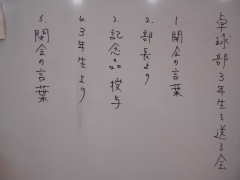 卓球部3年生を送る会
1. 開会の言葉
2. 部長より
3. 記念品授与
4. 3年生より
5. 閉会の言葉